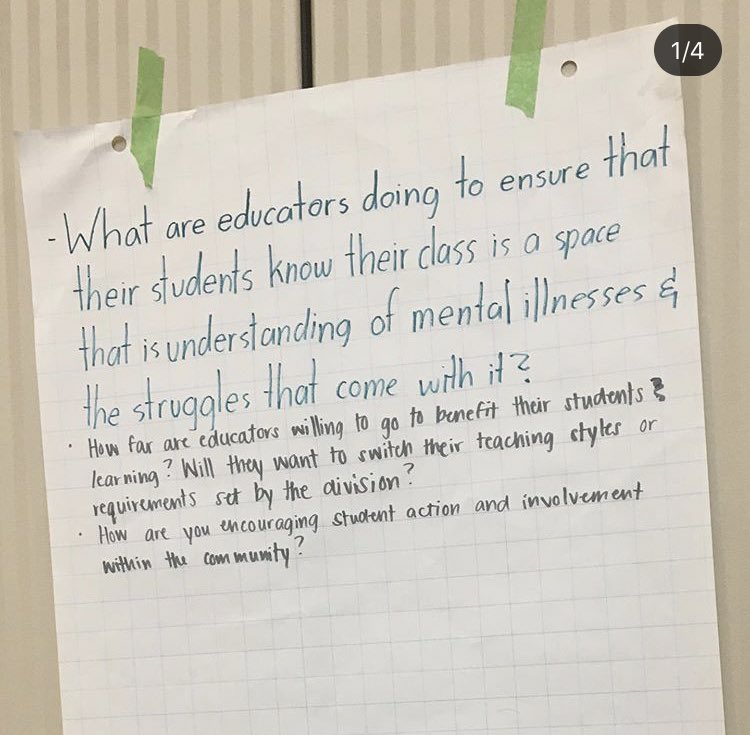 1/4
- What are educators doing to ensure that
their students know their class is a space
that is understanding of mental illnesses &
the struggles that come with it?
· How far are educators willing to go to benefit their students
learning? Will they want to switch their teaching styles or
requirements set by the division?
· How are you encouraging student action and involvement
within the community?